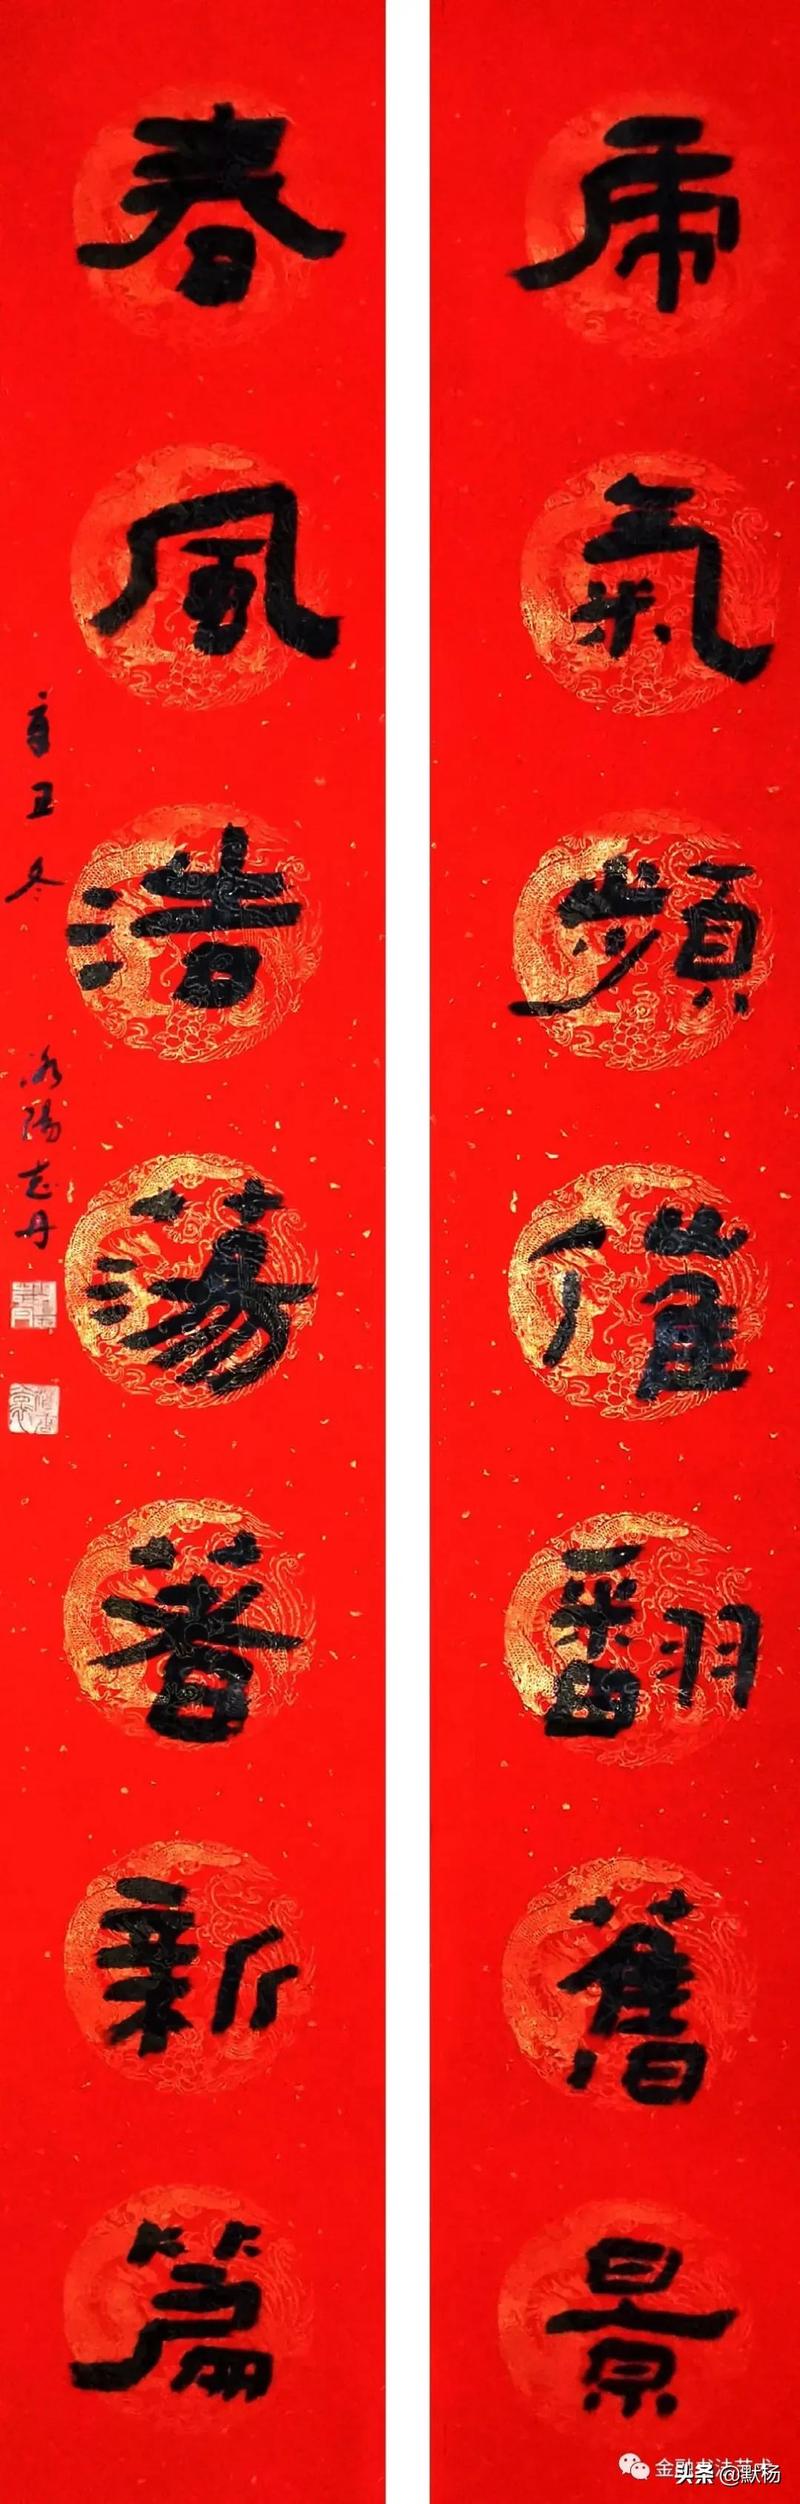 虎氣頻催翻舊景
春風浩蕩著新篇
辛丑冬 洛陽志丹
金融书法艺术
头条@默杨